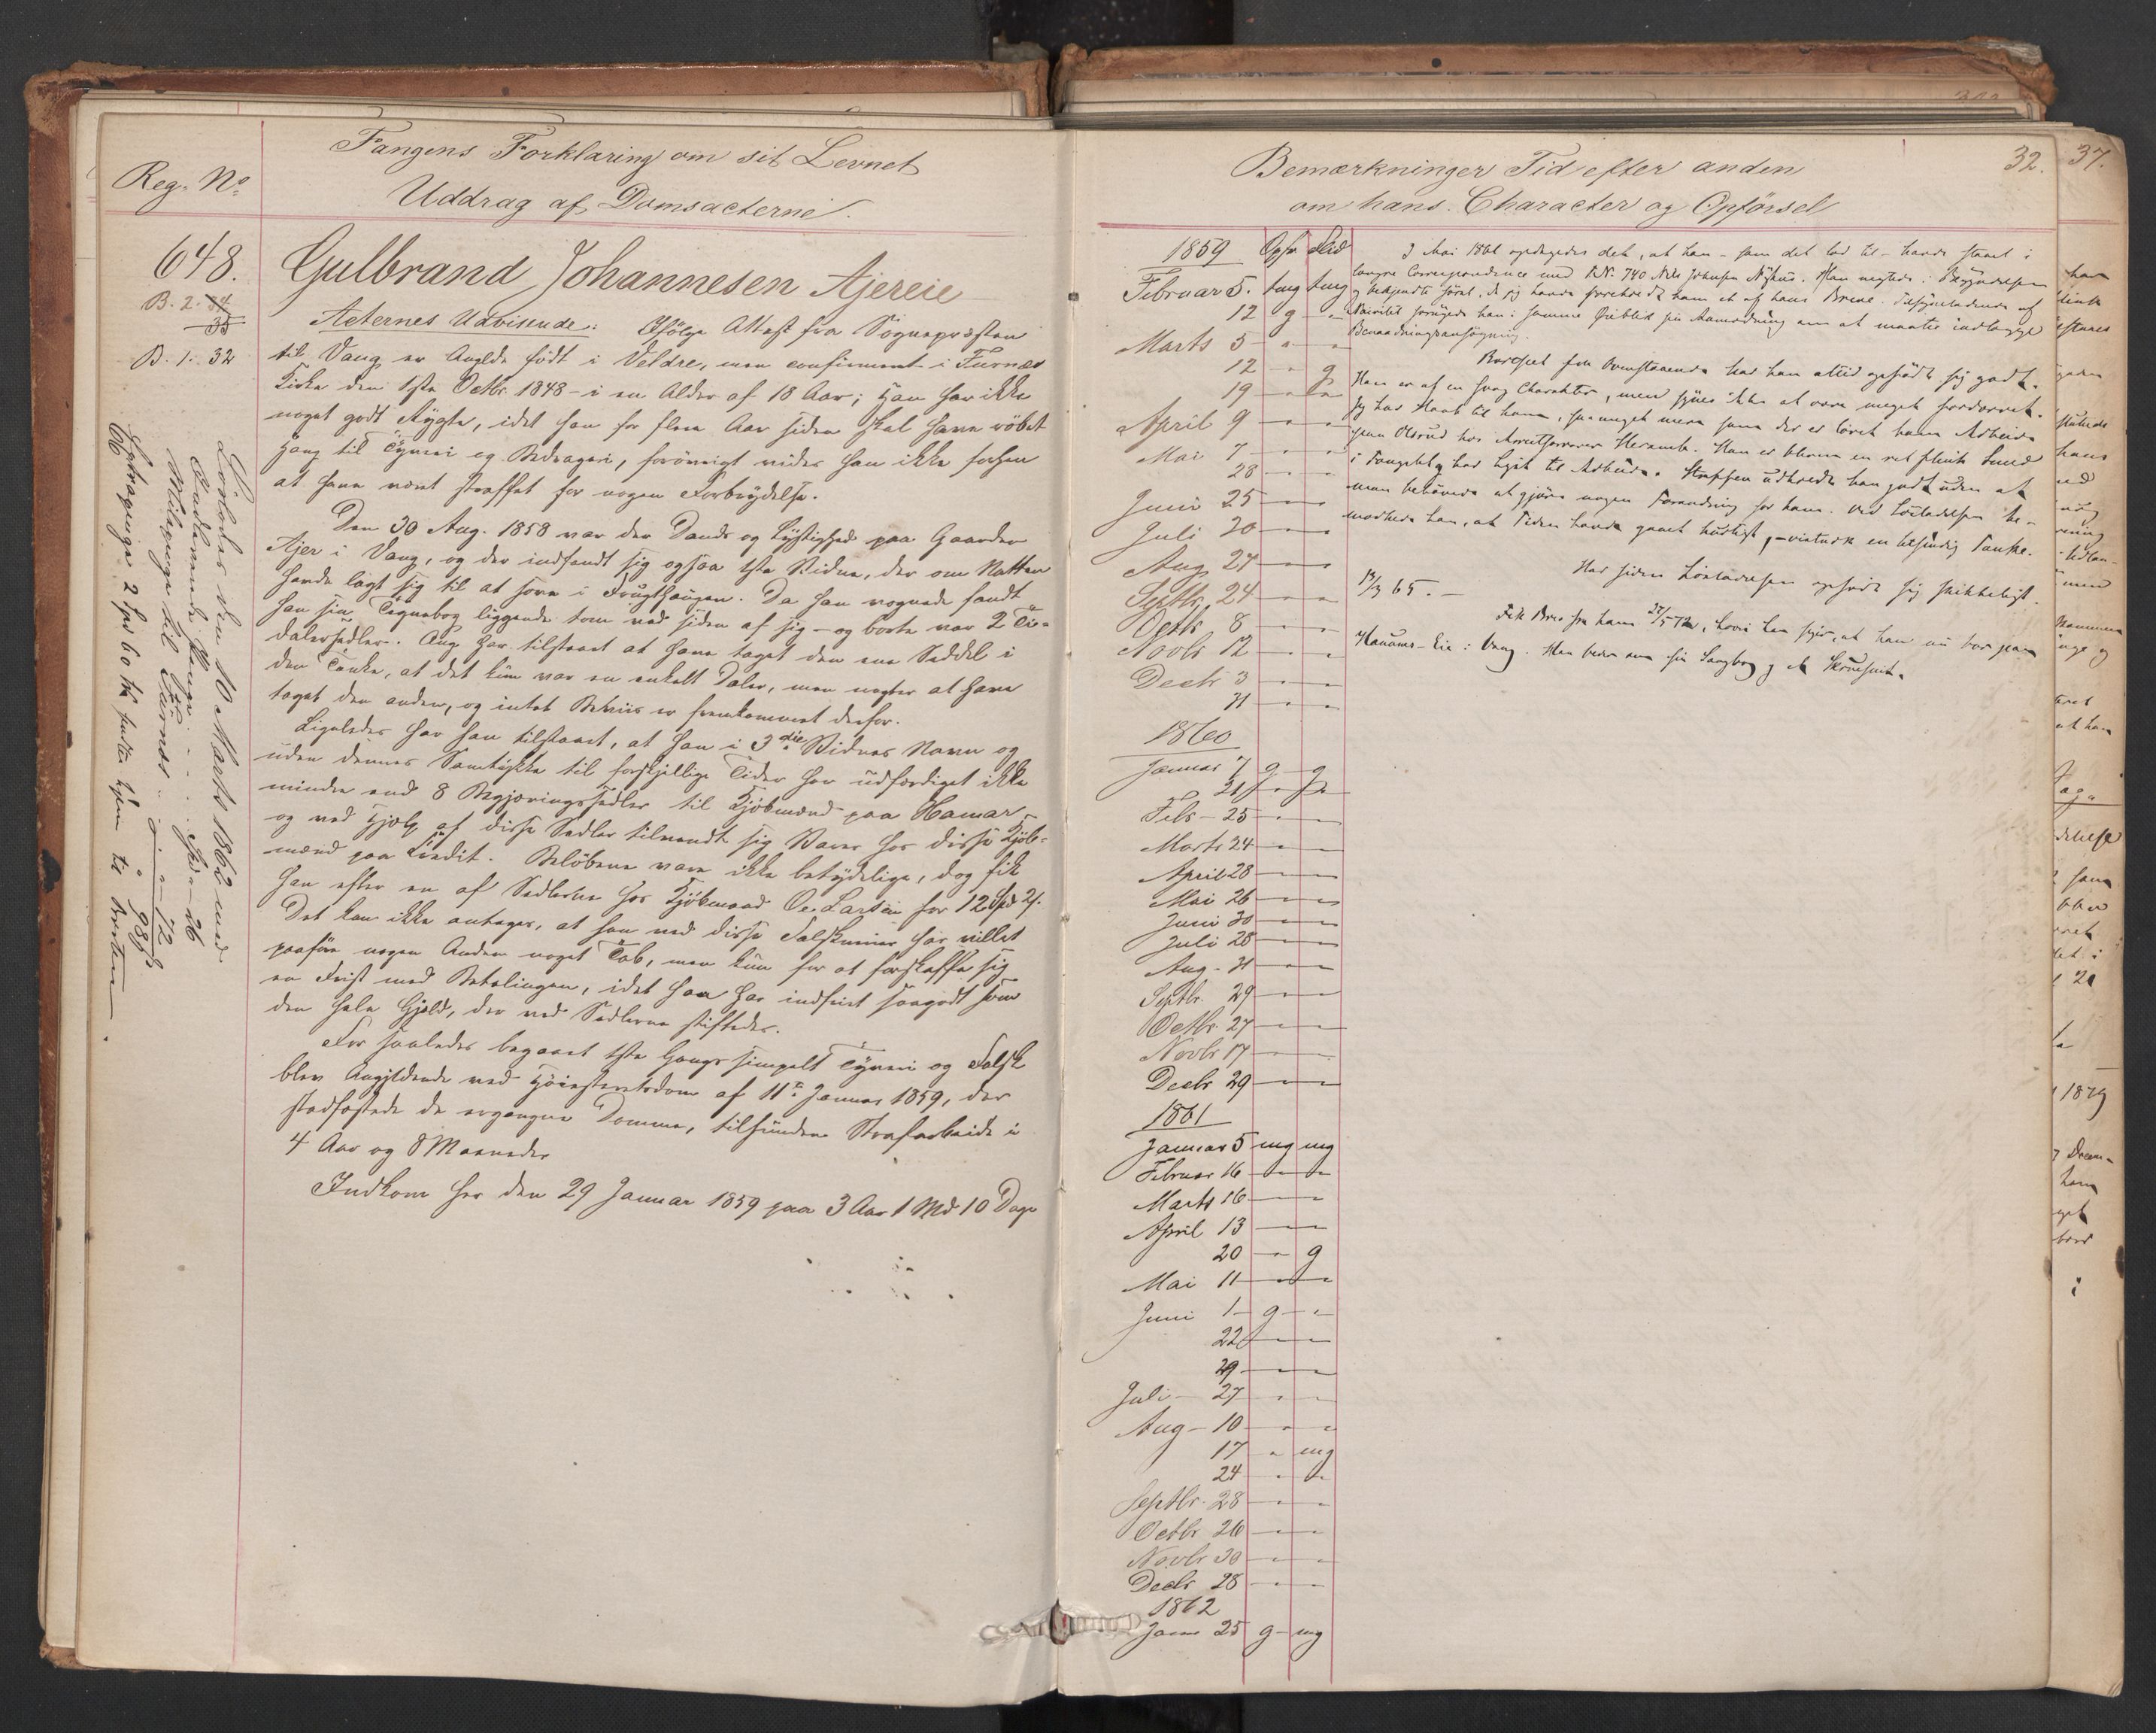 Fangens Forklaring om sit Levnet
Reg. No
Uddrag af Domsacterne.
648.
B. 2. 34
35
B. 1. 32
Gulbrand Johannesen Ajereie
Acternes Udvisende: Ifølge Attest fra Sognepræsten
til Vang er Angldе født i Veldre, men confirmeret i Furnæs
Kirke den 1ste Octbr. 1848 – i en Alder af 18 Aar; han har ikke
noget godt Rygte, idet han for flere Aar siden skal have røbet
Hang til Tyveri og Bedrageri, forøvrigt vides han ikke forhen
at have været straffet for nogen Forbrydelse.
Den 30 Aug. 1858 var der Dands og Lystighed paa Gaarden
Ajer i Vang, og der indfandt sig ogsaa 1ste Vidne, der om Natten
havde lagt sig til at sove i Frugthaugen. Da han vognede fandt
han sin Tegnebog liggende tom ved siden af sig – og borte var 2 Ti-
dalersedler. Ang. har tilstaaet at have taget den ene Seddel i
den Tanke, at det kun var en enkelt Daler, men negter at have
taget den anden, og intet Beviis er fremkommet derfor.
Ligeledes har han tilstaaet, at han i 3die Vidnes Navn og
uden dennes Samtykke til forskjellige Tider har udfærdiget ikke
mindre end 8 Begjæringssedler til Kjøbmænd paa Hamar –
og ved Hjælp af disse Sedler tilvendt sig Varer hos disse Kjøb-
mænd paa Credit. Beløbene vare ikke betydelige, dog fik
han efter en af Sedlerne hos Kjøbmand Oe. Larsen for 12 Spd 2 /.
Det kan ikke antages, at han ved disse Falsknerier har villet
paaføre nogen Anden noget Tab, men kun for at forskaffe sig
en Frist med Betalingen, idet han har indfriet saagodt som
den hele Gjæld, der ved Sedlerne stiftedes.
For saaledes begaaet 1ste Gangs simpelt Tyveri og Falsk
blev Angjeldende ved Høiesteretsdom af 11te Januar 1859, der
stadfæstede de ergangne Domme, tilfunden Strafarbeide i
4 Aar og 8 Maaneder
Indkom her den 29 Januar 1859 paa 3 Aar 1 Md 10 Dage
Løslodes den 10 Marts 1862 med
Indkomne Penge
26
Milepenge til Furnæs
72
98 ß
2 Spd 60
Bemærkninger Tid efter anden
om hans Character og Opførsel
32.
37.
1859 Opfør Flid
Februar 5. tmg tmg
12 g "
Marts 5 " "
12 " g
19 " "
April 9 " "
Mai 7 " "
28 " "
Juni 25 " "
Juli 30 " "
Aug 27 " "
Septbr. 24 " "
Octbr 8 " "
Novbr 12 " "
Decbr 3 " "
31 " "
1860
Januar 7 g g
21 " "
Febr 25 " "
Marts 24 " "
April 28 " "
Mai 26 " "
Juni 30 " "
Juli 28 " "
Aug 31 " "
Septbr. 29 " "
Octbr. 27 " "
Novbr 17 " "
Decbr 29 " "
1861
Januar 5 mg mg
Februar 16 " "
Marts 16 " "
April 13 " "
20 " g
Mai 11 " "
Juni 1 g "
22 " "
29 " "
Juli 27 " "
Aug 10 " "
17 " mg
24 " "
Septbr. 28 " "
Octbr 26 " "
Novbr 30 " "
Decbr 28 " "
1862
Janr 25 g mg
3 Mai 1861 opdagedes det, at han – som det lod til – havde staaet i
længre Correspondence med No. 740 Nils Johnsen Nyhus. Han negtede i Begyndelsen
og bekjendte først, da jeg havde foreholdt ham et af hans Breve.
fornyede han i samme Øieblik sin Anmodning om at maatte indlægge
Benaadningsansøgning.
Bortseet fra Ovenstaaende har han altid opført sig godt.
Han er af en svag Charakter, men synes ikke at være meget fordærvet.
Jeg har Haab til ham, saa meget mere som der er lovet ham Arbeide
paa Olsrud hos Heramb. Han er bleven en ret flink Smed
i Fængslet og har Lyst til Arbeide. Straffen udholdt han godt uden at
man behøvede at gjøre nogen Forandring for ham. Ved Løsladelsen be-
mærkede han, at Tiden havde gaaet hurtigt, –
Har siden Løsladelsen opført sig skikkeligt.
13/3 65. –
Fik Brev fra ham 27/5 72, hvori han siger, at han nu bor paa
Eie i Vang. Han beder om sin Sangbog og et